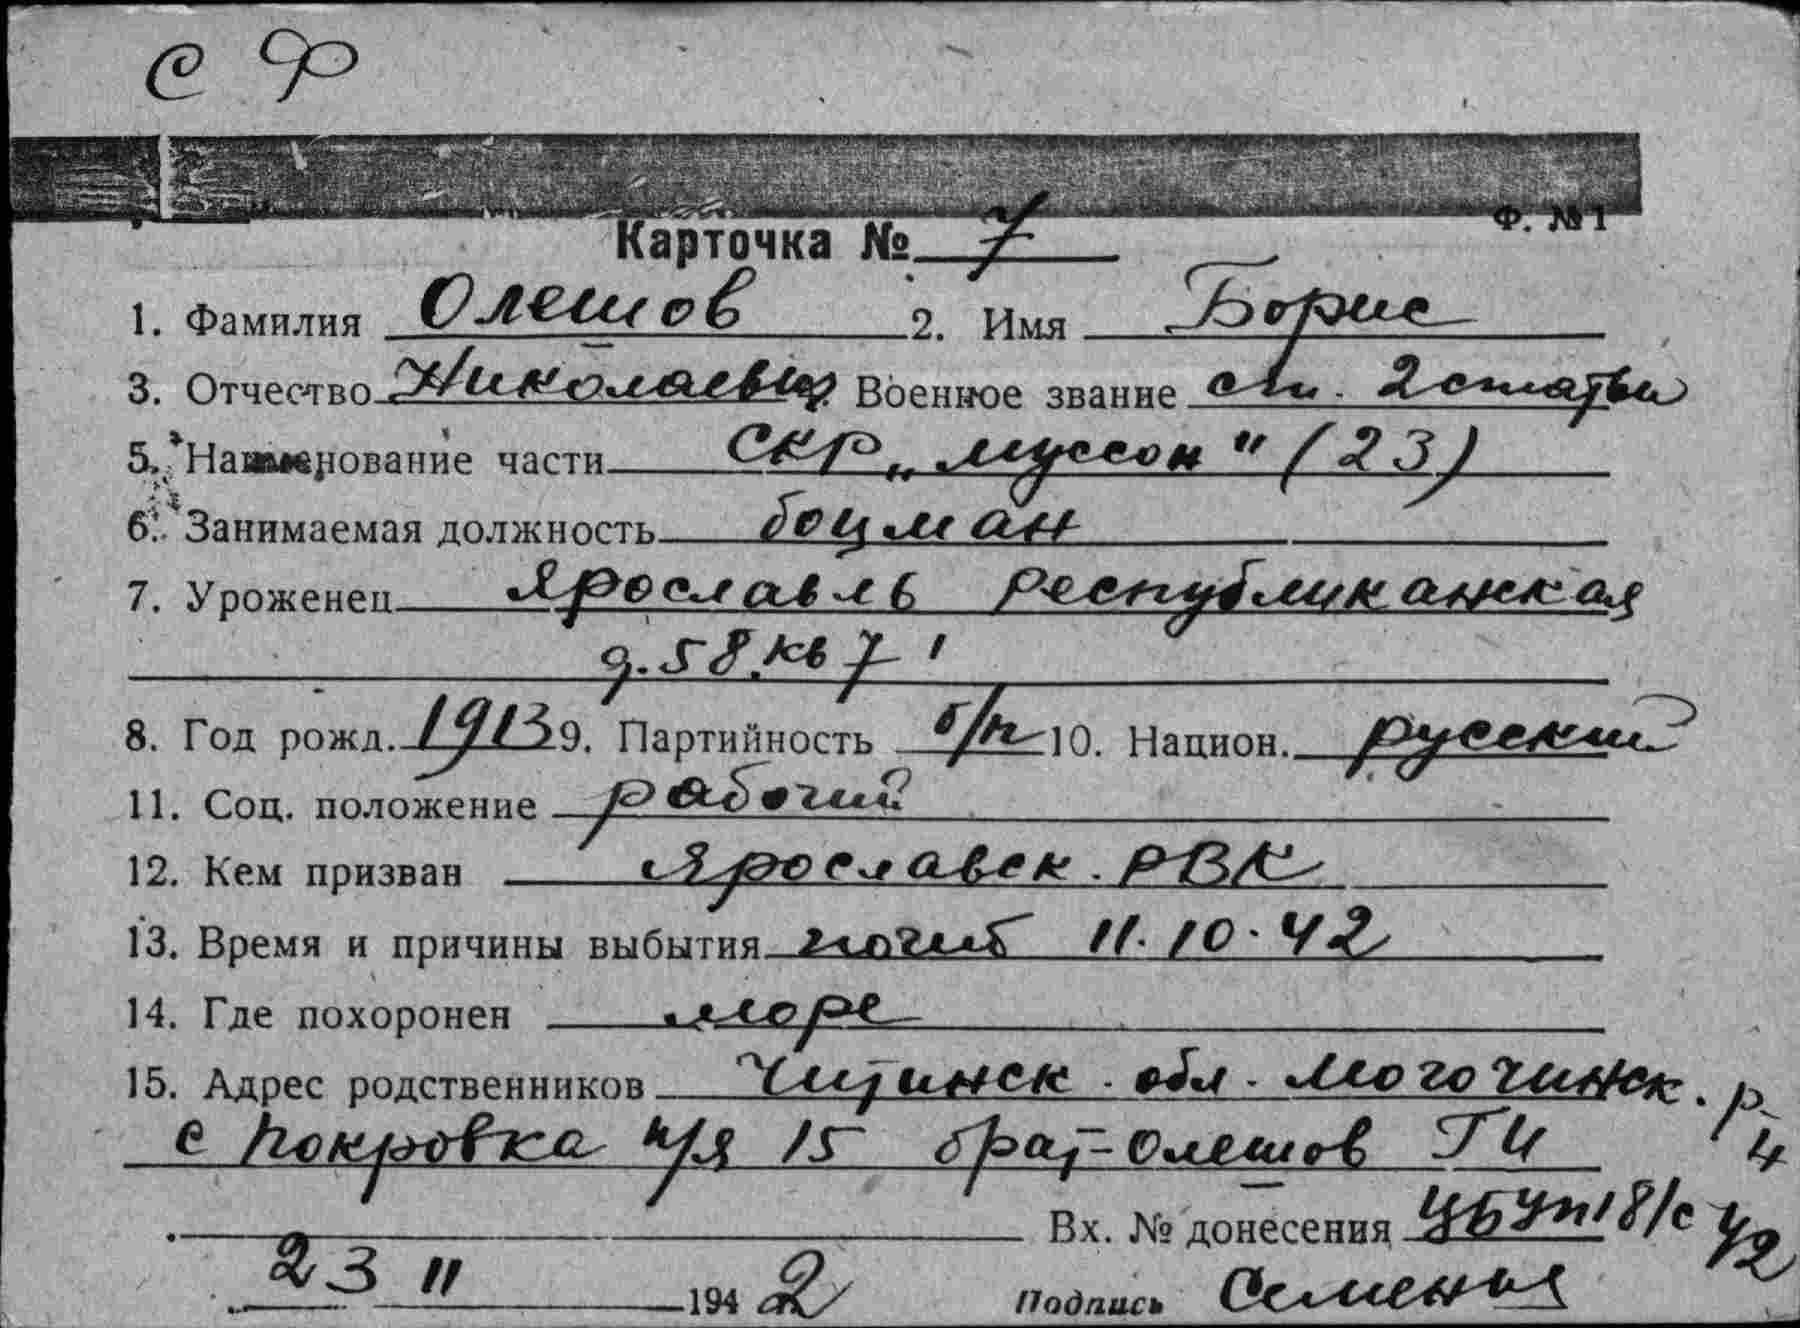 С Ф
Ф. №1
Карточка № 7
1. Фамилия Олешов 2. Имя Борис
3. Отчество Николаевич Военное звание ст. 2 статьи
5. Наименование части СКР „Муссон" (23)
6. Занимаемая должность боцман
7. Уроженец Ярославль Республиканская
д. 58. кв 7
8. Год рожд. 1913 9. Партийность б/п 10. Национ. русский
11. Соц. положение рабочий
12. Кем призван Ярославск. РВК
13. Время и причины выбытия погиб 11.10.42
14. Где похоронен море
15. Адрес родственников Читинск. обл. Могочинск. р-
с Покровка п/я 15 брат-Олешов Г И
Вх. № донесения 18/с
23 11 1942 Подпись